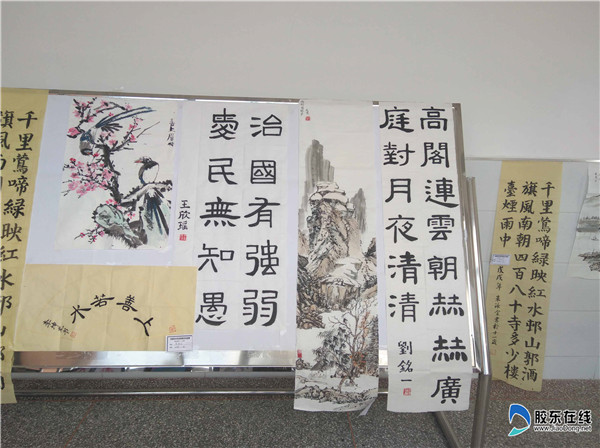 千里鶯啼綠映紅水邨山
旗風南
治國有強弱
愛民無知愚
王欣瑶
上善若水
高閣連雲朝赫赫廣
庭對月夜清清
劉銘一
千里鶯啼綠映紅水邨山郭酒
旗風南朝四百八十寺多少樓
臺煙雨中
戊戌年
胶东在线
www.jiaodong.net